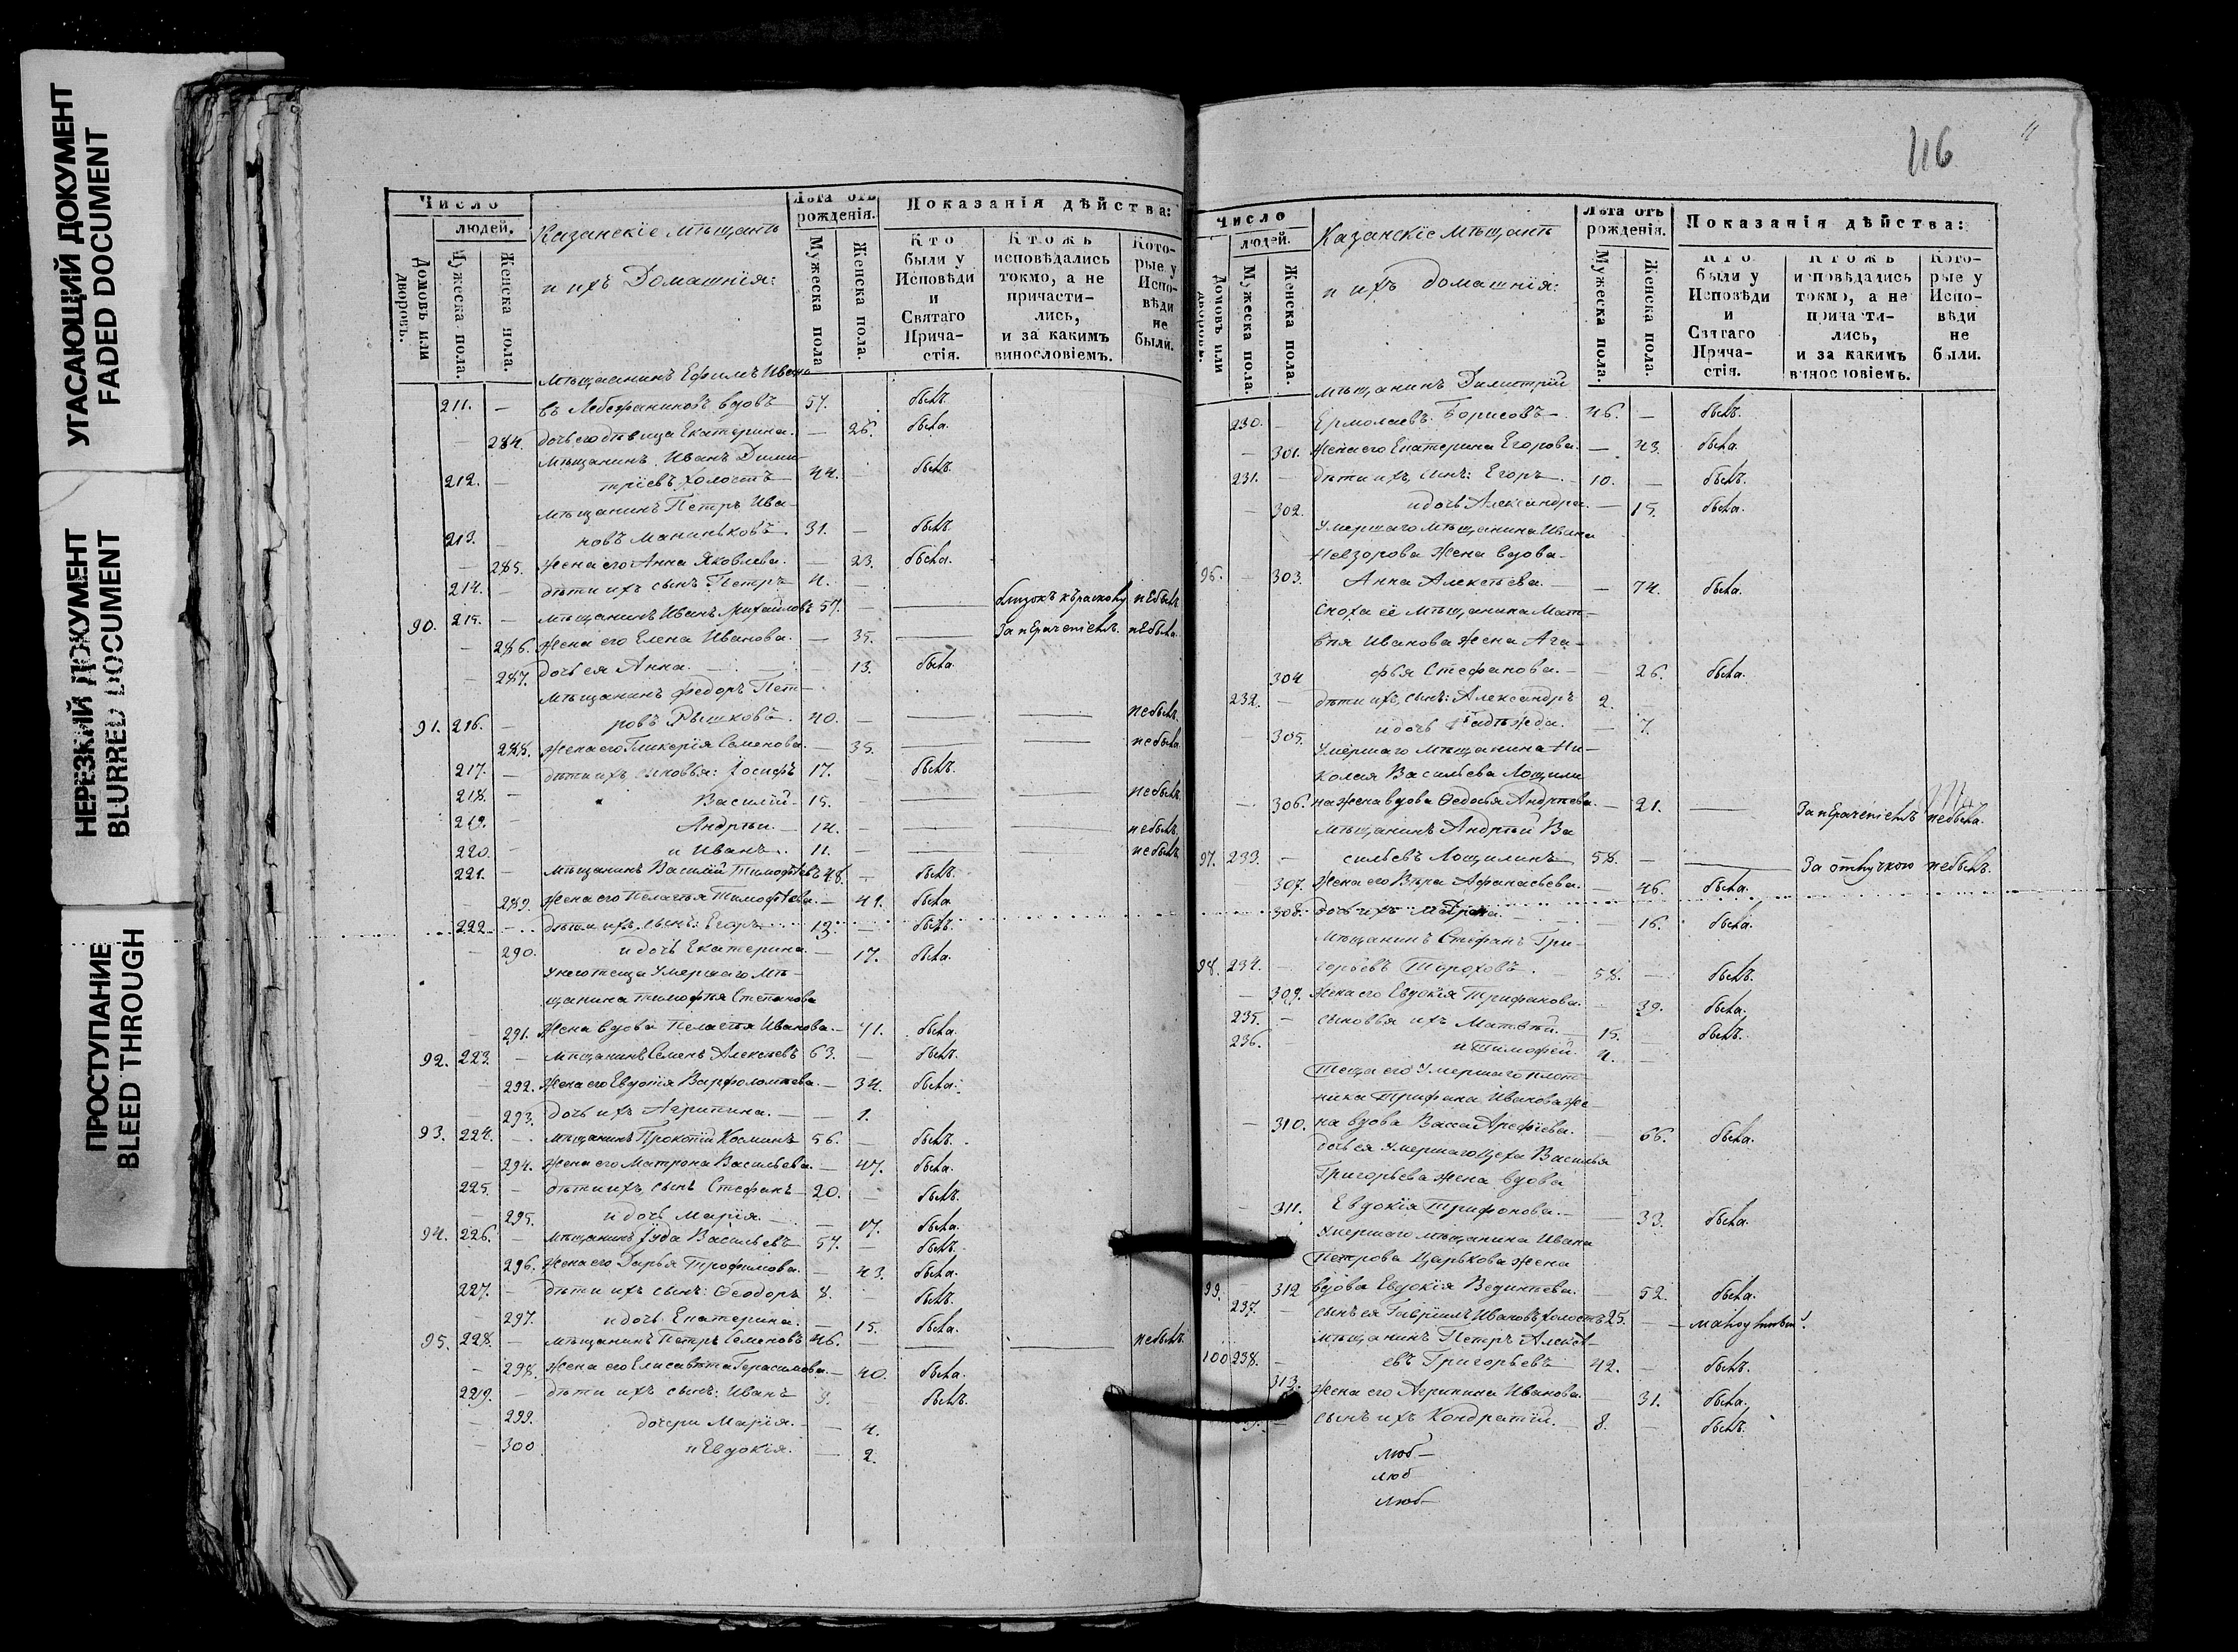 УГАСАЮЩИЙ ДОКУМЕНТ
FADED DOCUMENT
НЕРЕЗКИЙ ДОКУМЕНТ
BLURRED DOCUMENT
ПРОСТУПАНИЕ
BLEED THROUGH
Число
людей.
Домовъ или дворовъ.
Мужеска пола.
Женска пола.
Казанскіе мѣщане
и ихъ Домашнія:
Лѣта отъ рожденія.
Мужеска пола
Женска пола.
Показанія дѣйства:
Кто были у Исповѣди и Святаго Прича-стія.
Ктожъ исповѣдались токмо, а не причасти-лись, и за какимъ винословіемъ.
Кото-рые у Испо-вѣди не были.
Мѣщанинъ Ефимъ Ивано
211. — въ вдовъ 57. былъ.
— 284. дочь его дѣвица Екатерина. — 26. была.
Мѣщанинъ Иванъ Дими-
212. — тріевъ холостъ 44. былъ.
Мѣщанинъ Петръ Ива-
213. — новъ Маниньковъ. 31. — былъ.
— 285. жена его Анна Яковлева. — 23. была.
214. — дѣти ихъ сынъ Петръ 4. —
90. 215. — мѣщанинъ Иванъ Михайловъ 57. — небылъ
— 286. жена его Елена Иванова. — 35. — За небыла.
— 287. дочь ея Анна. — 13. была.
Мѣщанинъ Федоръ Пет-
91. 216. — ровъ Рышковъ. 40. — небылъ.
288. жена его Гликерія Семенова. — 35. — небыла
217. — дѣти ихъ, сыновья: Іосифъ 17. — былъ.
218. — Василій 15. — небылъ
219. — Андрей. — 14. — небылъ.
220. — и Иванъ. 11. — небылъ
221. — мѣщанинъ Василій Тимофѣевъ 48. — былъ.
— 289. жена его Пелагѣя Тимофѣева. — 41. была
222. — дѣти ихъ, сынъ: Егоръ 13. — былъ.
— 290. и дочь Екатерина — 17. была.
У него теща умершаго мѣ-
щанина Тимофея Степанова
— 291. жена вдова Пелагѣя Иванова. — 71. была.
92. 223. — мѣщанинъ Семенъ Алексѣевъ 63. — былъ.
— 292. жена его Евдокія Варфоломѣева. — 34. была.
— 293. дочь ихъ Агрипина. — 1.
93. 224. — мѣщанинъ Прокопій Косминъ 56. — былъ.
— 294. жена его Матрона Васильева. — 47. была.
225. — дѣти ихъ, сынъ Стефанъ 20. былъ.
— 295. и дочь Марія. — 17. была.
94. 226. — мѣщанинъ Іуда Васильевъ 57. — былъ.
296. жена его Дарья Трофимова. — 43. была.
227. — дѣти ихъ сынъ: Ѳеодоръ 8. былъ.
— 297. и дочь Екатерина. — 15. была.
95. 228. — мѣщанинъ Петръ Семеновъ 46. — небылъ.
— 298. жена его Елисавета Герасимова. — 40. была.
229. — дѣти ихъ сынъ: Иванъ 9. — былъ.
— 299. дочери Марія. — 4.
— 300 и Евдокія. — 2.
116
Число
людей.
Домовъ или дворовъ.
Мужеска пола.
Женска пола.
Казанскіе Мѣщане
и ихъ домашнія:
Лѣта отъ рожденія.
Мужеска пола.
Женска пола.
Показанія дѣйства:
Кто были у Исповѣди и Святаго Прича-стія.
Ктожъ исповѣдались токмо, а не причасти-лись, и за какимъ винословіемъ.
Кото-рые у Испо-вѣди не были.
мѣщанинъ Димитрій
230. — Ермолаевъ Борисовъ — 46. — былъ.
— 301. жена его Екатерина Егорова. — 43. была.
231. — дѣти ихъ, сынъ: Егоръ — 10. — былъ.
— 302. и дочь Александра. — 15. была.
Умершаго мѣщанина Ивана
Невзорова жена вдова —
96. — 303. Анна Алексѣева. — 74. была.
Сноха её мѣщанина Мат-
вѣя Иванова жена Ага-
304 фья Стефанова. — 26. была.
232. — дѣти ихъ, сынъ: Александръ 2.
— 305. и дочь Надежда. — 7.
Умершаго мѣщанина Ни-
колая Васильева Лощили
— 306. на жена вдова Ѳедосья Андрѣева. — 21. — За небыла.
Мѣщанинъ Андрей Ва
97. 233. — сильевъ Лощилинъ 58. — За отлучкою небылъ.
307. жена его Вѣра Афанасьева. — 46. была.
308. дочь ихъ — 16. была.
Мѣщанинъ Стефанъ Гри-
98. 234. — горьевъ Тороховъ. 58. — былъ.
— 309. жена его Евдокія Трифонова. — 39. была.
235. — сыновья ихъ Матвѣй. 15. — былъ.
236. — и Тимофей. 4. —
Теща его умершаго плот-
ника Трифона Иванова же-
— 310. на вдова Васса Арефіева. — 66. была.
дочь ея умершаго цеха Василья
Григорьева жена вдова
— 311. Евдокія Трифонова. — 33. была.
Умершаго мѣщанина Ивана
Петрова Царькова жена
99. — 312 вдова Евдокія — 52. была.
237. — сынъ ея Гавріилъ Ивановъ холостъ 25. —
Мѣщанинъ Петръ Алексѣ-
100 238. — евъ Григорьевъ 42. — былъ.
313. жена его Агрипина Иванова. — 31. была.
сынъ ихъ Кондратій. — 8. — былъ.